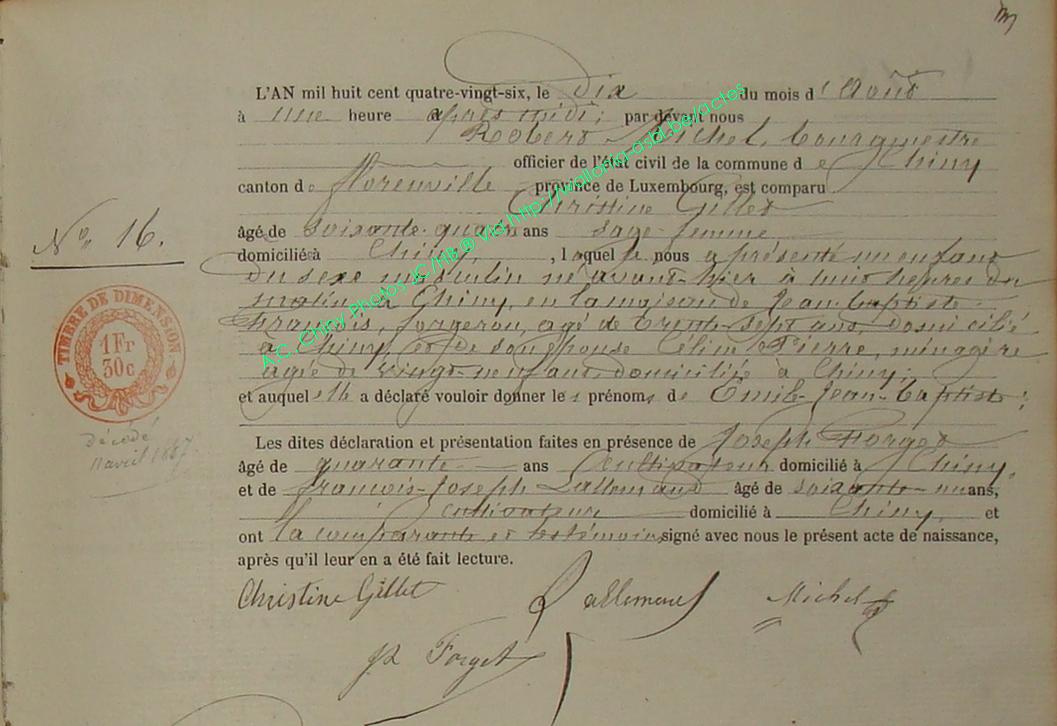 L'AN mil huit cent quatre-vingt-six, le dix du mois d'Août
à une heure après midi; par devant nous
Robert Michel, bourgmestre
officier de l'état civil de la commune de Chiny
canton de florenville, province de Luxembourg, est comparu
Christine Gillet
âgée de soixante-quatre ans sage-femme
domiciliée à Chiny, laquelle nous a présenté un enfant
du sexe masculin né avant-hier à huit heures du
matin à Chiny, en la maison de Jean-baptiste
François, forgeron, âgé de trente-sept ans, domicilié
à Chiny, et de son épouse Céline Pierre, ménagère
âgée de vingt-neuf ans, domiciliée à Chiny;
et auquel elle a déclaré vouloir donner les prénoms de Emile-Jean-baptiste;
Les dites déclaration et présentation faites en présence de Joseph Forget
âgé de quarante ans cultivateur domicilié à Chiny,
et de françois-Joseph Lallemand âgé de soixante-un ans,
cultivateur domicilié à Chiny, et
ont la comparante et les témoins signé avec nous le présent acte de naissance,
après qu'il leur en a été fait lecture.
Christine Gillet Lallemand Michel
Forget
N° 16.
TIMBRE DE DIMENSION
1 Fr
30 c
décédé
11 avril 1887
A.C. Chiny Photos JC/MB ® Via http://wallonia-asbl.be/actes